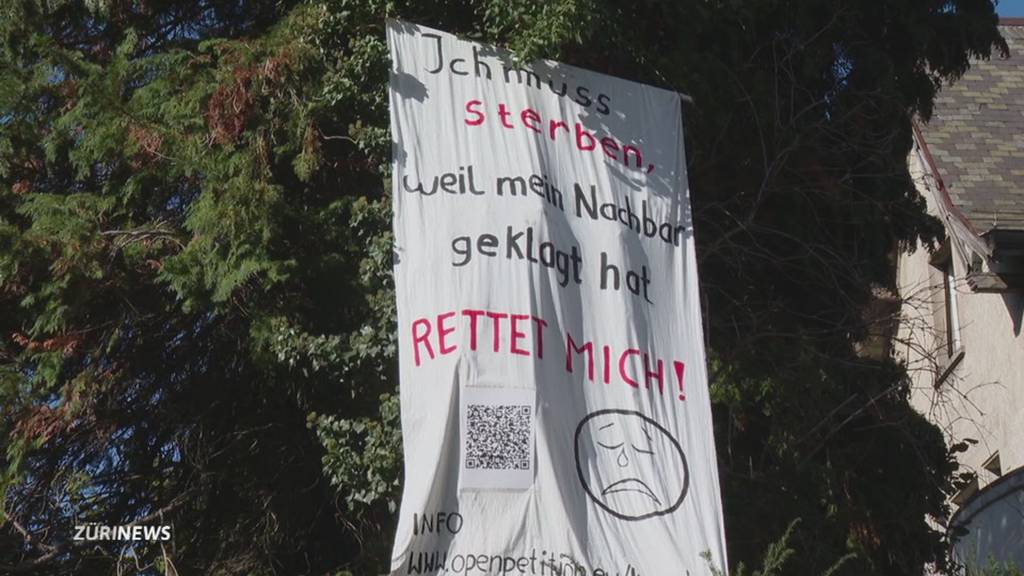 Ich muss
sterben,
weil mein Nachbar
geklagt hat
RETTET MICH!
INFO
www.openpetition.eu/
ZÜRINEWS